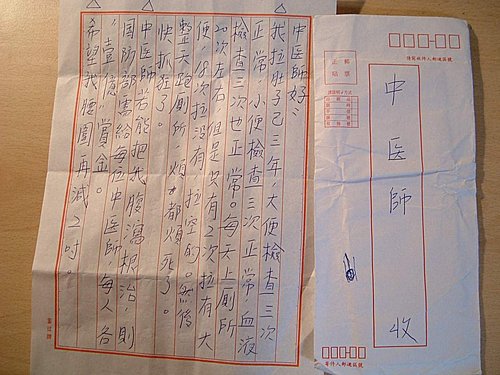 中医師好：
我拉肚子已三年,大便檢查三次
正常,小便檢查三次正常,血液
檢查三次也正常。每天上厠所
20次左右,但是只有2次拉有大
便,18次拉没有,拉空的。然後
整天跑厠所,煩才都煩死了。
快抓狂了。
中医師若能把我腹瀉根治,則
國防部寄給每位中医師每人各
"壹億"賞金。
希望我腰圍再減2吋。
中医師 收
寄件人郵遞區號